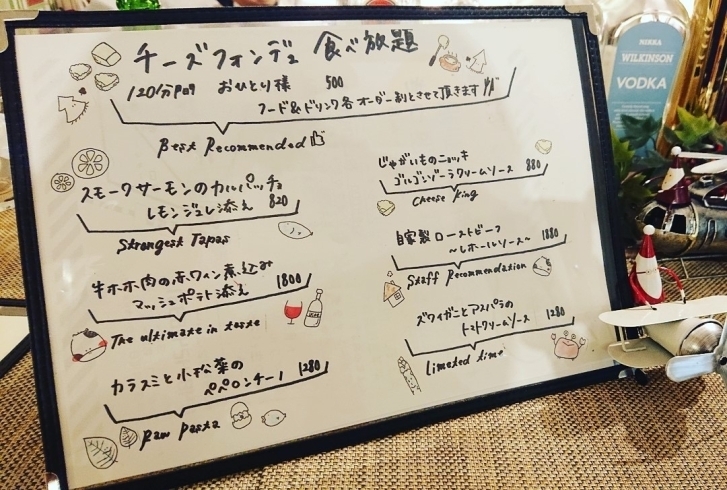 チーズフォンデュ 食べ放題
120分間 おひとり様 500
フード&ドリンク各オーダー制とさせて頂きます
Best Recommended
スモークサーモンのカルパッチョ
レモンジュレ添え 820
Strongest Tapas
牛ホホ肉の赤ワイン煮込み
マッシュポテト添え 1800
The ultimate in taste
カラスミと小松菜の
ペペロンチーノ 1280
Raw pasta
じゃがいものニョッキ
ゴルゴンゾーラクリームソース 880
Cheese King
自家製ローストビーフ
〜レホールソース〜 1880
Staff Recommendation
ズワイガニとアスパラの
トマトクリームソース 1280
limeted time
NIKKA
WILKINSON
VODKA